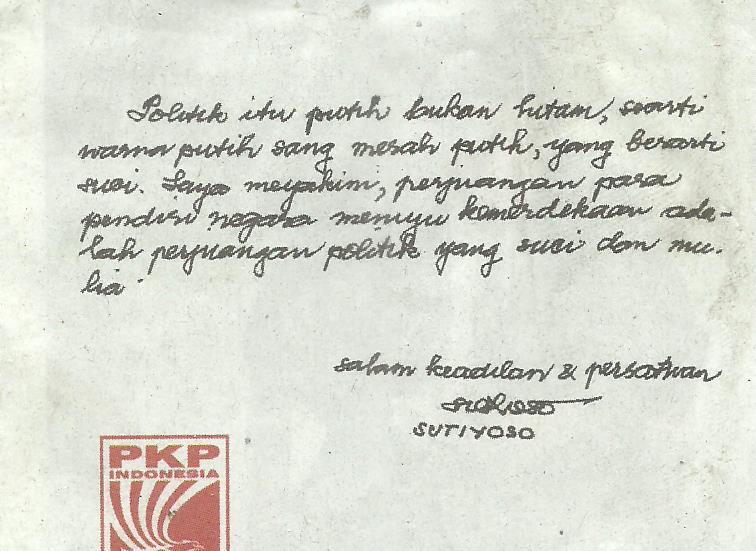 Politik itu putih bukan hitam, searti
warna putih sang merah putih, yang berarti
suci. Saya meyakini, perjuangan para
pendiri negara menuju kemerdekaan ada-
lah perjuangan politik yang suci dan mu-
lia.
salam keadilan & persatuan
SUTIYOSO
PKP
INDONESIA